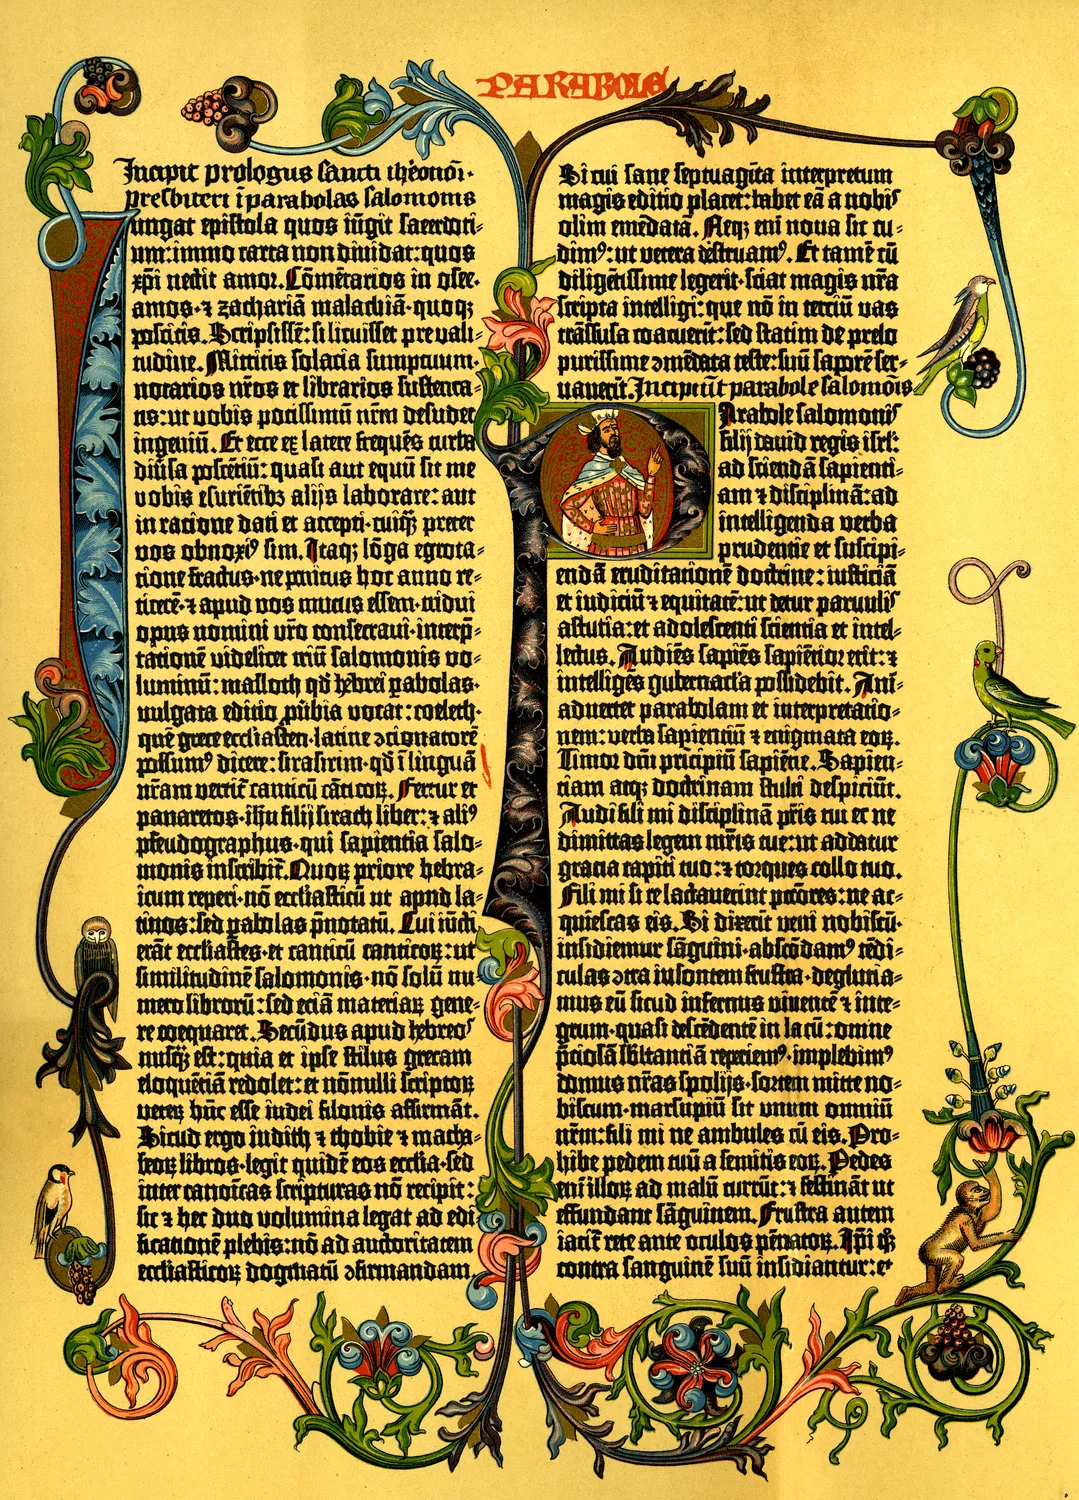 PARABOLE
Incipit prologus sancti iheronimi
presbiteri ī parabolas salomonis
Iungat epistola quos iūgit sacerdoti-
um: immo carta non dividat: quos
xp̄i nectit amor. Cōmētarios in osee.
amos. ⁊ zachariā malachiā. quoqꝫ
poscitis. Scripsissē: si licuisset pre vali-
tudine. Mittitis solacia sumptuum.
notarios nr̄os et librarios sustenta-
tis: ut vobis potissimū nr̄m desudet
ingeniū. Et ecce ex latere frequēs turba
diūsa poscētiū: quasi aut equū sit me
vobis esuriētibꝫ alijs laborare: aut
in ratione dati et accepti. cuiqꝫ preter
vos obnoxiꝰ sim. Itaqꝫ lōga egrota-
tione fractus. ne penitus hoc anno re-
ticerē. ⁊ apud vos mutus essem. tridui
opus nomini vr̄o consecravi. interp̄-
tationē videlicet triū salomonis vo-
luminū: masloth qd̄ hebrei ꝑabolas.
vulgata editio ꝓv̄bia vocat: coeleth.
quē grece ecclīasten. latine ↄcionatorē
possumꝰ dicere: sirasirim. qd̄ ī linguā
nr̄am vertit̄ canticū cāticoꝝ. Fertur et
panaretos. ih̄u filij sirach liber: ⁊ aliꝰ
pseudographus. qui sapientia salo-
monis inscribit̄. Quoꝝ priore hebra-
icum reperi. nō ecclīasticū ut apud la-
tinos: sed ꝑabolas p̄notatū. Cui iūcti
erāt ecclīastes. et canticū canticoꝝ: ut
similitudinē salomonis. nō solū nu-
mero librorū: sed eciā materiaꝝ gene-
re coequaret. Secūdus apud hebreos
nusqꝫ est: quia et ipse stilus grecam
eloquētiā redolet: et nōnulli scriptoꝝ
veteꝝ hūc esse iudei filonis affirmāt.
Sicud ergo iudith ⁊ thobie ⁊ macha-
beoꝝ libros. legit quidē eos ecclīa. sed
inter canonicas scripturas nō recipit:
sic ⁊ hec duo volumina legat ad edi-
ficationē plebis: nō ad auctoritatem
ecclīasticoꝝ dogmatū ↄfirmandam.
Si cui sane septuagīta interpretum
magis editio placet: habet eā a nobis
olim emēdatā. Neqꝫ eni nova sic cu-
dimꝰ: ut vetera destruamꝰ. Et tamē cū
diligētissime legerit. sciat magis nr̄a
scripta intelligi: que nō in terciū vas
trāsfusa coacuerīt: sed statim de prelo
purissime ↄmēdata teste: suū saporē ser-
vaverīt. Incipiūt parabole salomōis
Parabole salomonis
filij david regis isrl̄:
ad sciendā sapienti-
am ⁊ disciplinā: ad
intelligenda verba
prudentie et suscipi-
endā eruditationē doctrine: iusticiā
et iudiciū ⁊ equitatē: ut detur parvulis
astutia: et adolescenti scientia et intel-
lectus. Audiēs sapiēs sapiētior erit: ⁊
intelligēs gubernacl'a possidebit. Ani-
advertet parabolam et interpretatio-
nem: verba sapientiū ⁊ enigmata eoꝝ.
Timor dn̄i pricipiū sapiētie. Sapien-
tiam atqꝫ doctrinam stulti despiciūt.
Audi fili mi disciplinā pr̄is tui et ne
dimittas legem mr̄is tue: ut addatur
gracia capiti tuo: ⁊ torques collo tuo.
Fili mi si te lactaverint pctōres: ne ac-
quiescas eis. Si dixerīt veni nobiscū.
insidiemur sāguini. abscōdamꝰ tēdi-
culas ↄtra insontem frustra. deglutia-
mus eū sicud infernus viventē ⁊ inte-
grum. quasi descēdentē in lacū: omne
p̄ciosā sbstantiā reperiemꝰ. implebimꝰ
domus nr̄as spolijs. sortem mitte no-
biscum. marsupiū sit unum omniū
nr̄m: fili mi ne ambules cū eis. Pro-
hibe pedem tuū a semitis eoꝝ. Pedes
eni illoꝝ ad malū currūt: ⁊ festināt ut
effundant sāguinem. Frustra autem
iacit̄ rete ante oculos pēnatoꝝ. Ipi qꝫ
contra sanguinē suū insidiantur: et